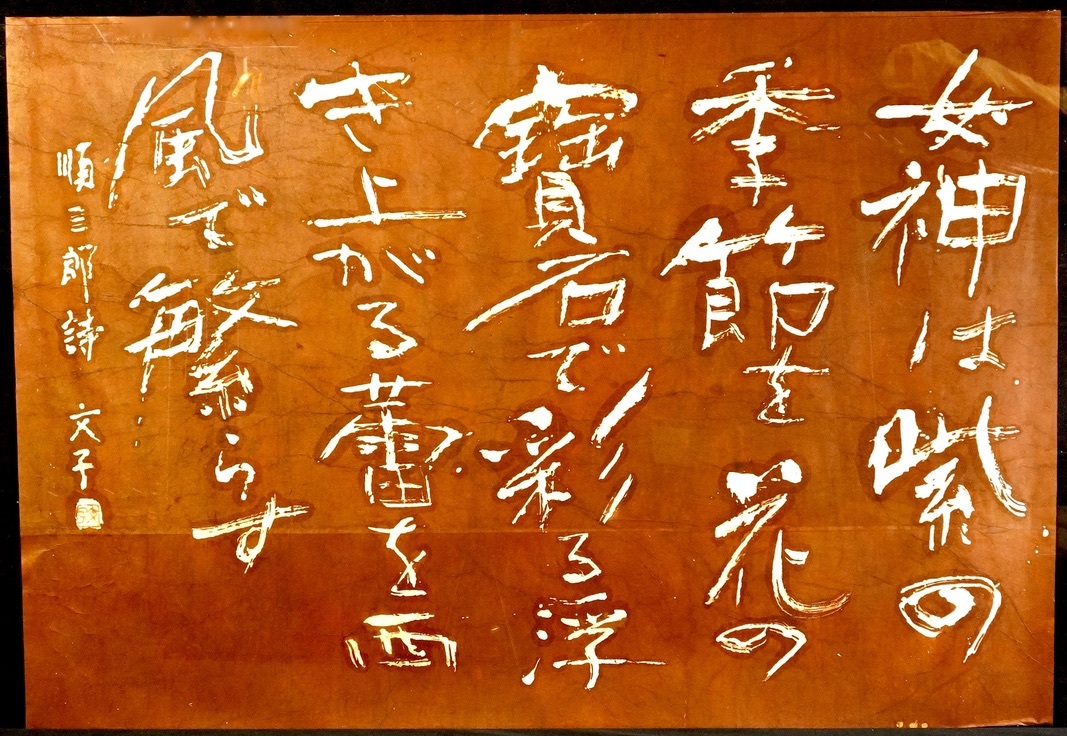 女神は紫の
季節を花の
寶石で彩る浮
き上がる蕾を西
風で繁らす
順三郎詩 文子